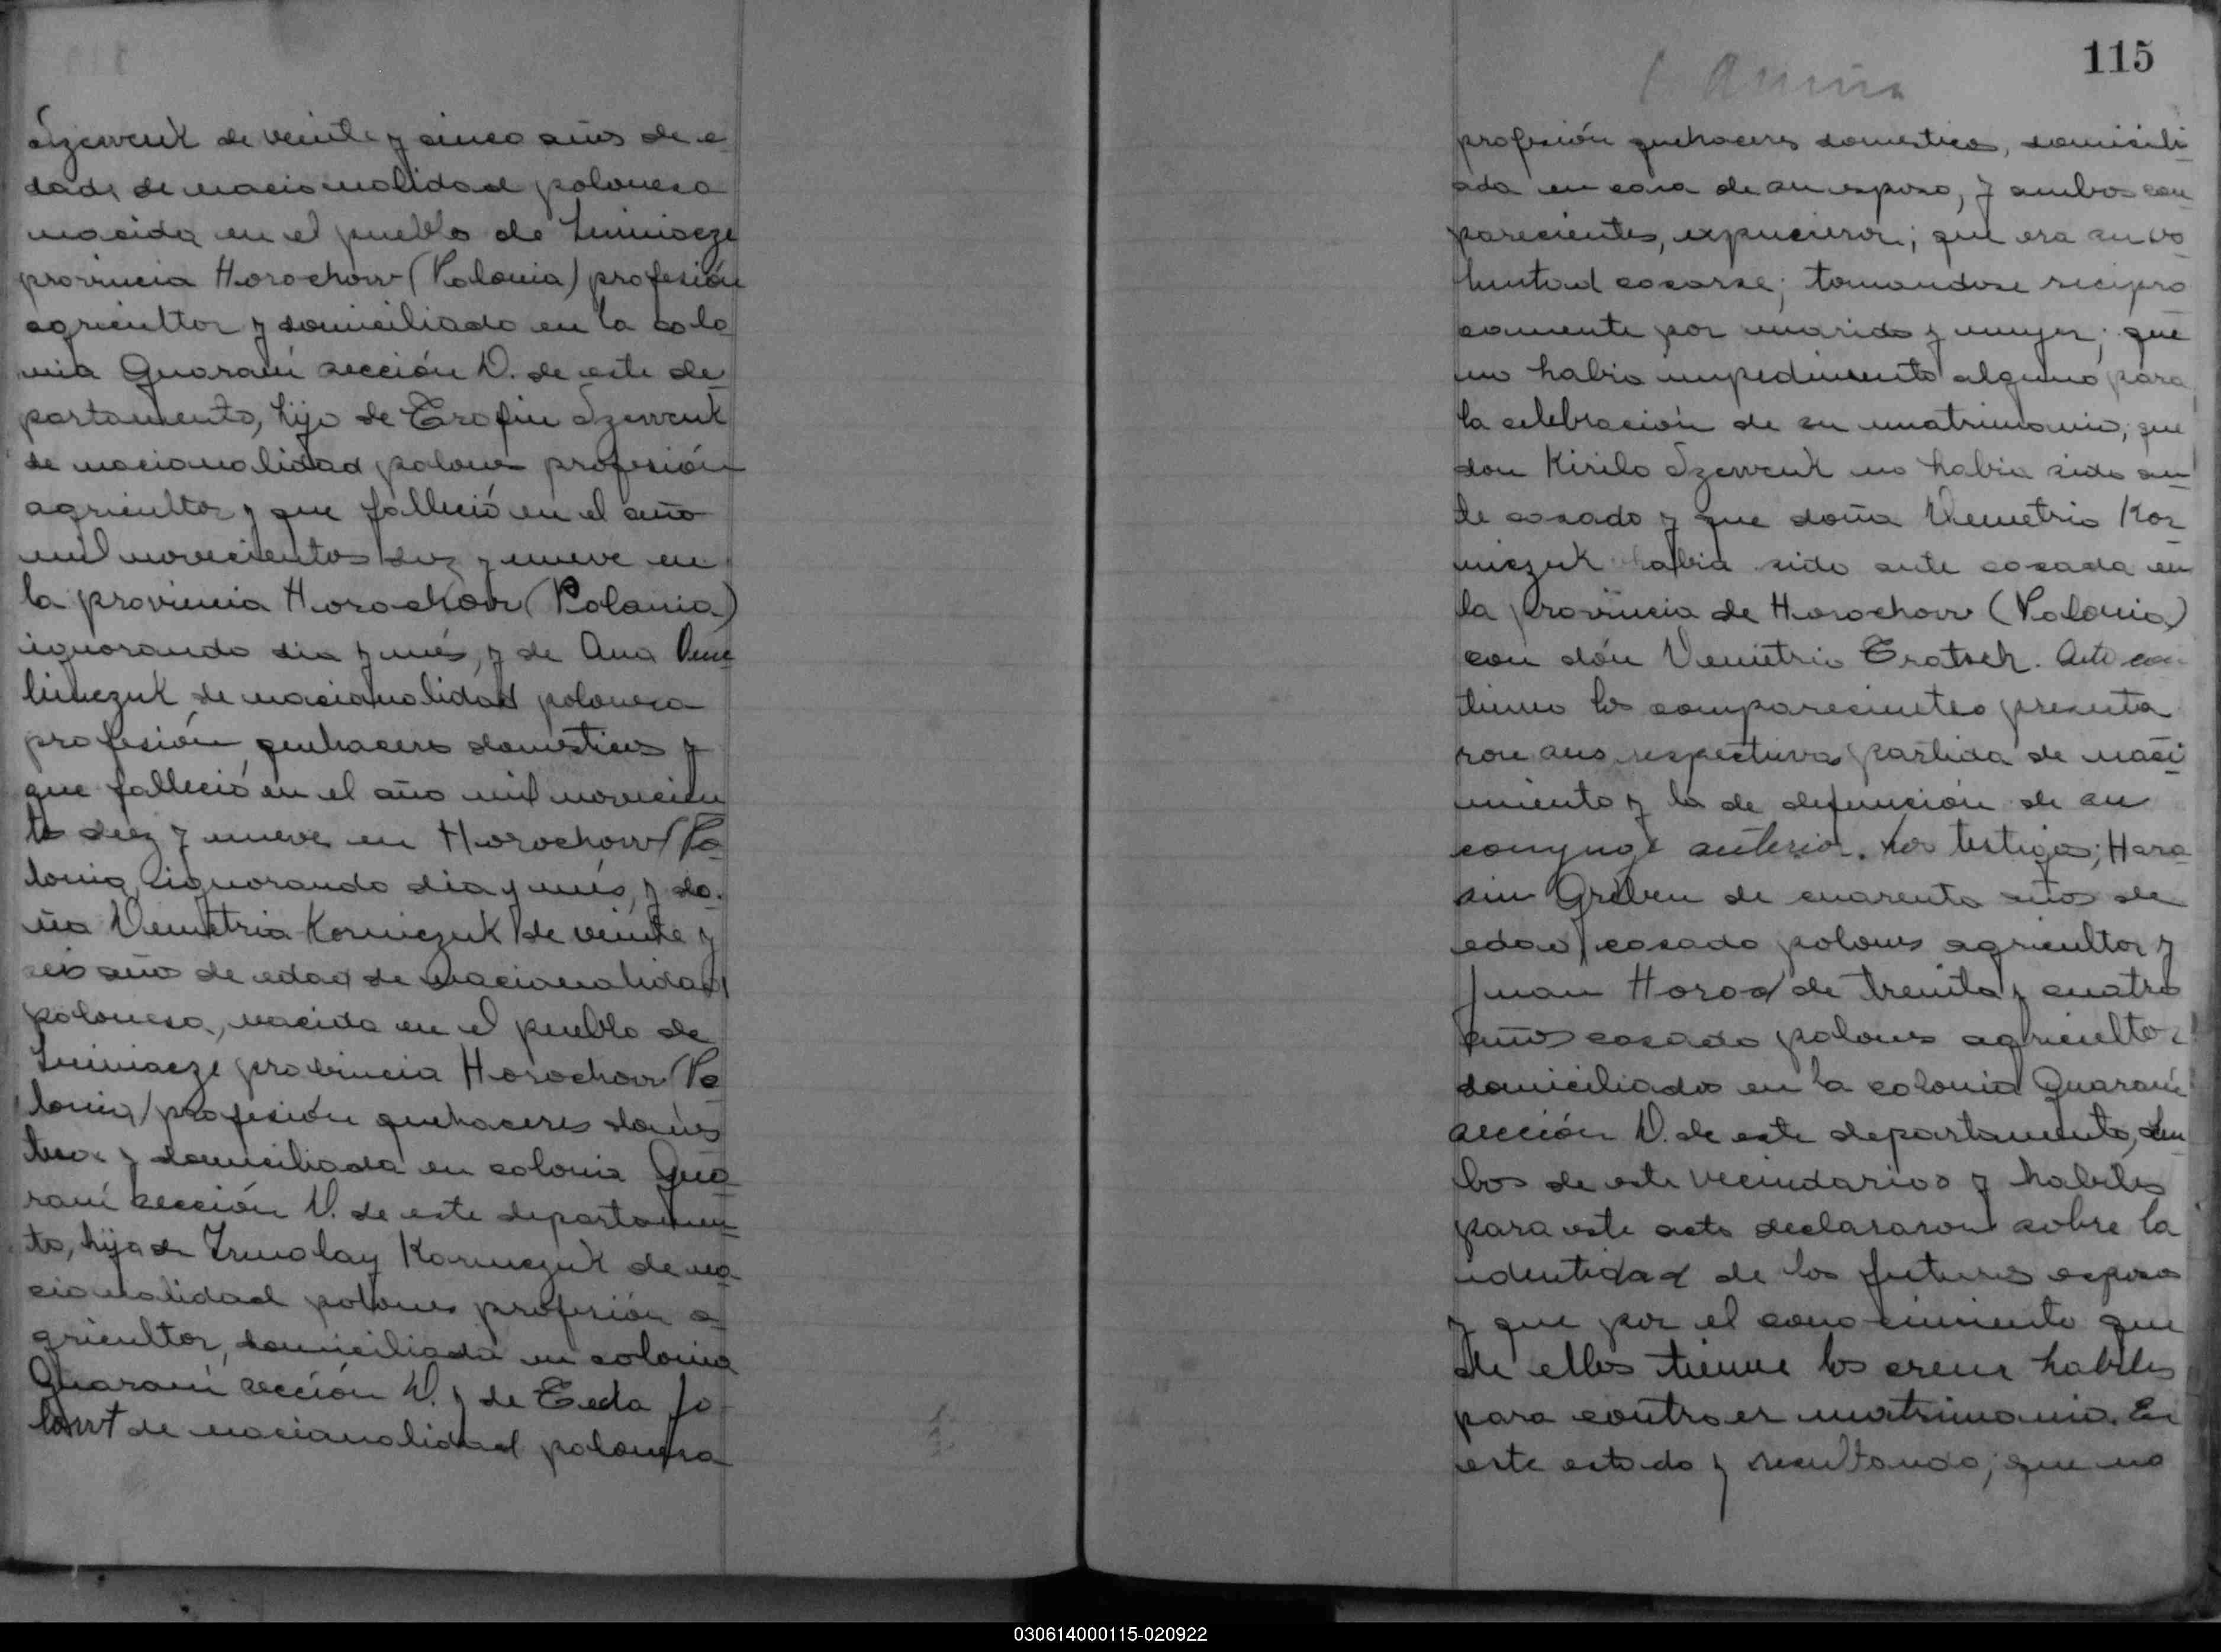 Szewcuk de veinte y cinco años de e-
dad, de nacionalidad polonesa
nacida en el pueblo de Liniacze
provincia Horochow (Polonia) profesión
agricultor y domiciliado en la colo-
nia Guaraní sección V. de este de-
partamento, hijo de Erofin Szewcuk
de nacionalidad polones profesión
agricultor y que falleció en el año
mil novecientos diez y nueve en
la provincia Horochow (Polonia)
ignorando dia y més, y de Ana
de nacionalidad polonesa
profesión quehaceres domesticos y
que falleció en el año mil novecien
tos diez y nueve en Horochow (Po-
lonia) ignorando dia y més, y do-
ña Demetria Korniczuk de veinte y
seis años de edad de nacionalidad
polonesa, nacida en el pueblo de
Liniacze provincia Horochow (Po
lonia) profesión quehaceres domés
ticos y domiciliada en colonia Gua-
raní sección V. de este departamen-
to, hija de Irmolay Korniczuk de na-
cionalidad polones profesión a-
gricultor, domiciliada en colonia
Guaraní sección V. y de Eeda
de nacionalidad polonesa
115
profesión quehaceres domestico, domicili-
ada en casa de su esposo, y ambos con-
parecientes, expucieron; que era su vo-
luntad casarse; tomandose recipro
camente por marido y mujer; que
no habia impedimento alguno para
la celebración de su matrimonio; que
don Kirilo Szewcuk no habia sido an-
te casado y que doña Demetria Kor-
niczuk habia sido ante casada en
la provincia de Horochow (Polonia)
con dón Demetrio Eratsch. Acto con-
tinuo los comparecientes presenta
ron sus respectivas partida de naci-
miento y la de defunción de su
conyuge anterior. Los testigos; Hara-
sin Greben de cuarenta años de
edad casado polones agricultor y
Juan Horod de treinta y cuatro
años casado polones agricultor
domiciliados en la colonia Guaraní
sección V. de este departamento, am-
bos de este vecindarios y habiles
para este acto declararon sobre la
identidad de los futuros esposos
y que por el conocimiento que
de ellos tienne los creen habiles
para contraer matrimonio. En
este estado y resultando; que no
030614000115-020922